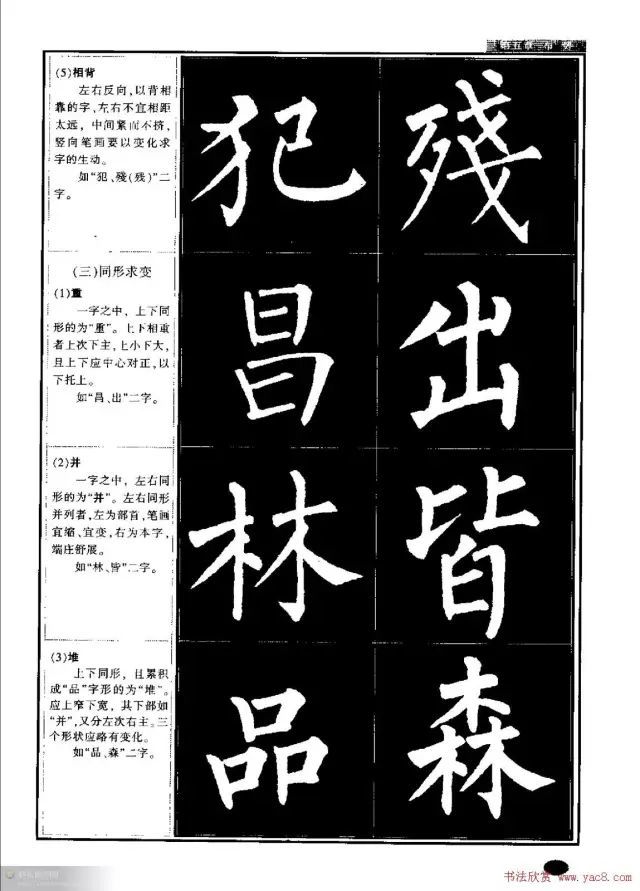 第五章 布势
(5)相背
左右反向,以背相
靠的字,左右不宜相距
太远,中间紧而不挤,
竖向笔画要以变化求
字的生动。
如“犯、殘(残)”二
字。
犯 殘
(三)同形求变
(1)重
一字之中,上下同
形的为“重”。上下相重
者上次下主,上小下大,
且上下应中心对正,以
下托上。
如“昌、出”二字。
昌 出
(2)并
一字之中,左右同
形的为“并”。左右同形
并列者,左为部首,笔画
宜缩、宜变,右为本字,
端庄舒展。
如“林、皆”二字。
林 皆
(3)堆
上下同形,且累积
成“品”字形的为“堆”。
应上窄下宽,其下部如
“并”,又分左次右主。三
个形状应略有变化。
如“品、森”二字。
品 森
书法欣赏 www.yac8.com